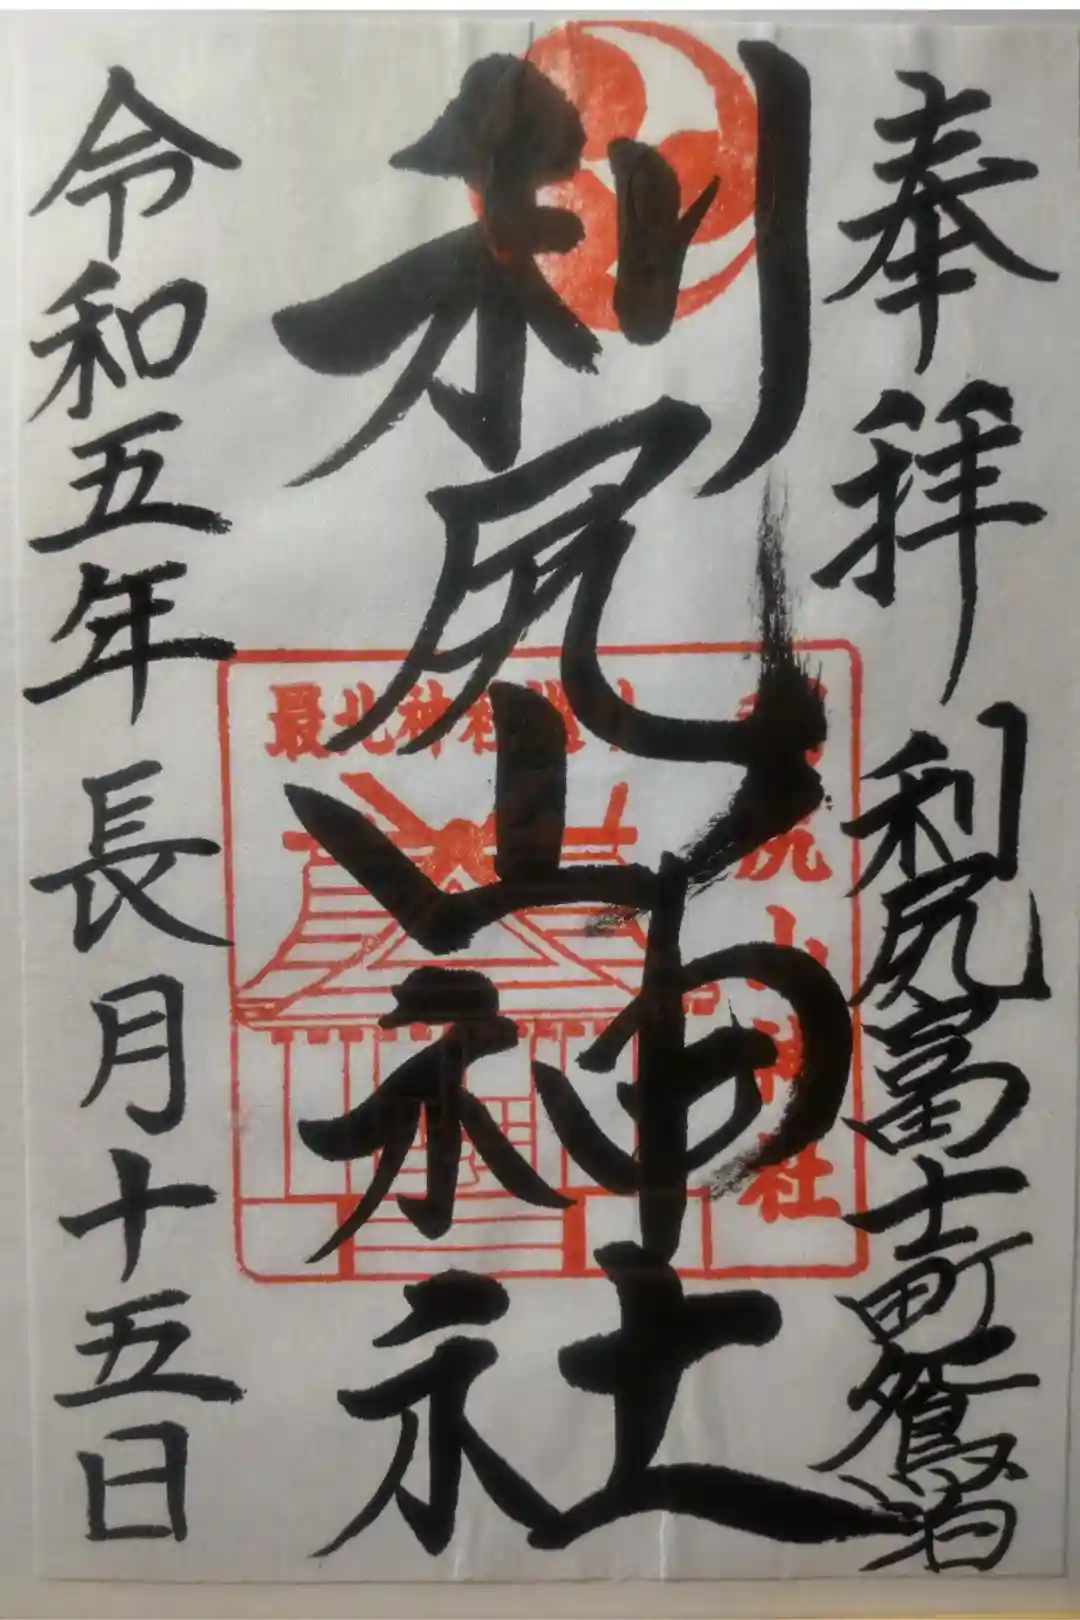 奉拝
利尻富士町鴛泊
利尻山神社
令和五年長月十五日
最北神社
尻山神社